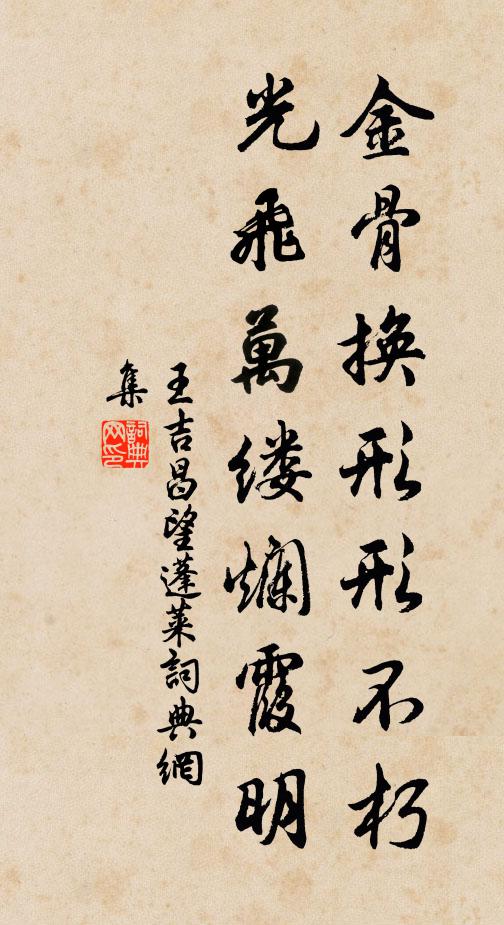 金骨换形形不朽
光飛萬缕爛霞明
王吉昌望蓬萊詞典網
集
詞典
网印